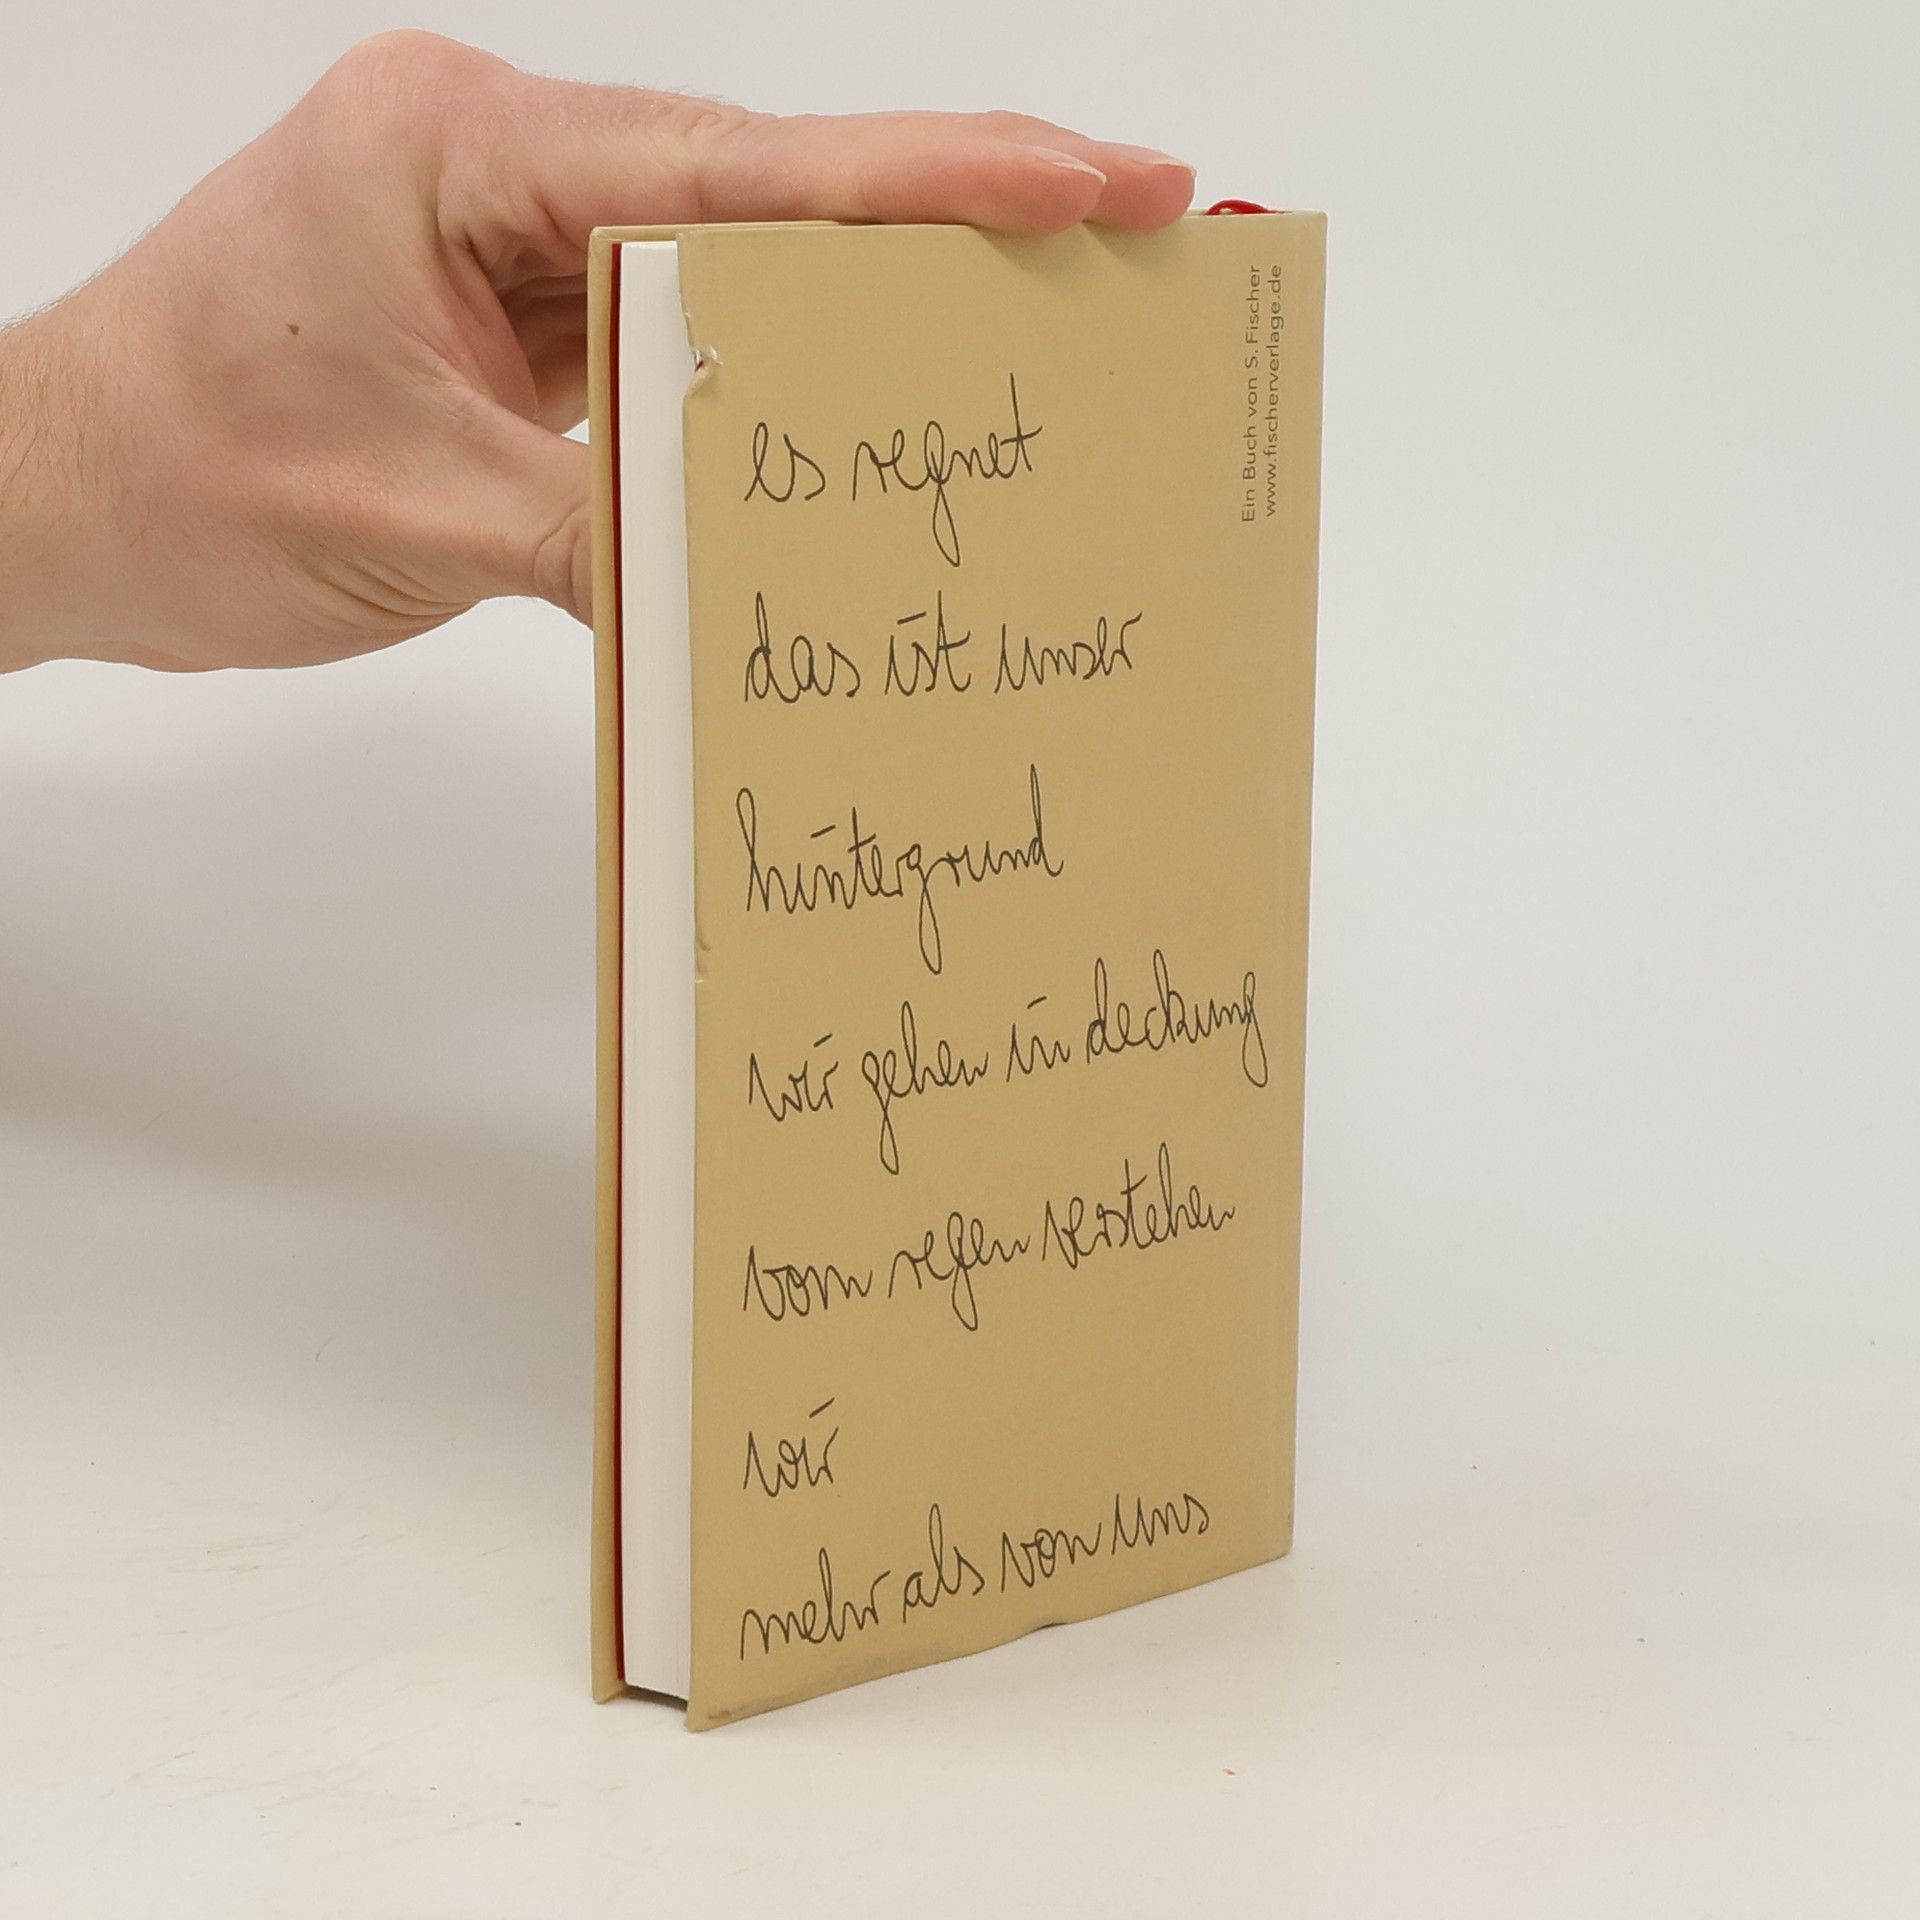 Ein Buch von S. Fischer
www.fischerverlage.de
es regnet
das ist unser
hintergrund
wir gehen in deckung
vom regen verstehen
wir
mehr als von uns